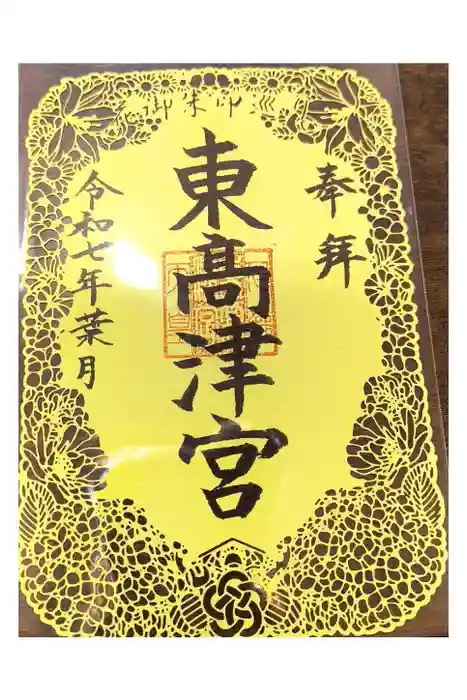 奉拝
東高津宮
令和七年葉月